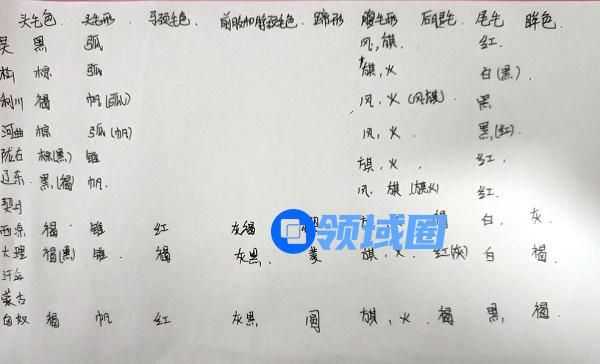 头毛色 头毛形 马颈毛色 前肢和背毛色 蹄形 腹毛形 后腿毛 尾毛 眸色
吴 黑 弧 风,旗. 红.
棕 弧 旗,火 白(黑).
利川 褐 帆(弧) 风,火(风旗). 黑
河曲 棕 弧(帆) 风,火. 黑(红).
陇右 棕(黑) 锥 旗,火. 红.
辽东 黑(褐) 帆. 风 旗(旗火) 红.
契丹
西凉 褐 锥 红 灰褐 褐 白, 灰.
大理 褐(黑) 锥 褐 灰黑. 菱 旗,火. 红(灰) 白 褐
蒙古
匈奴 褐 帆 红 灰黑 圆 旗,火. 褐 黑, 褐.
领域圈